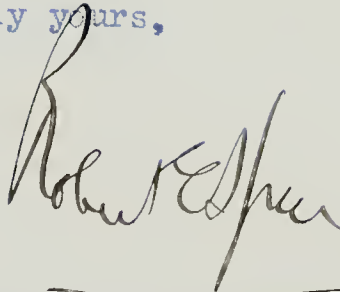 y yours,
Robert E Speer